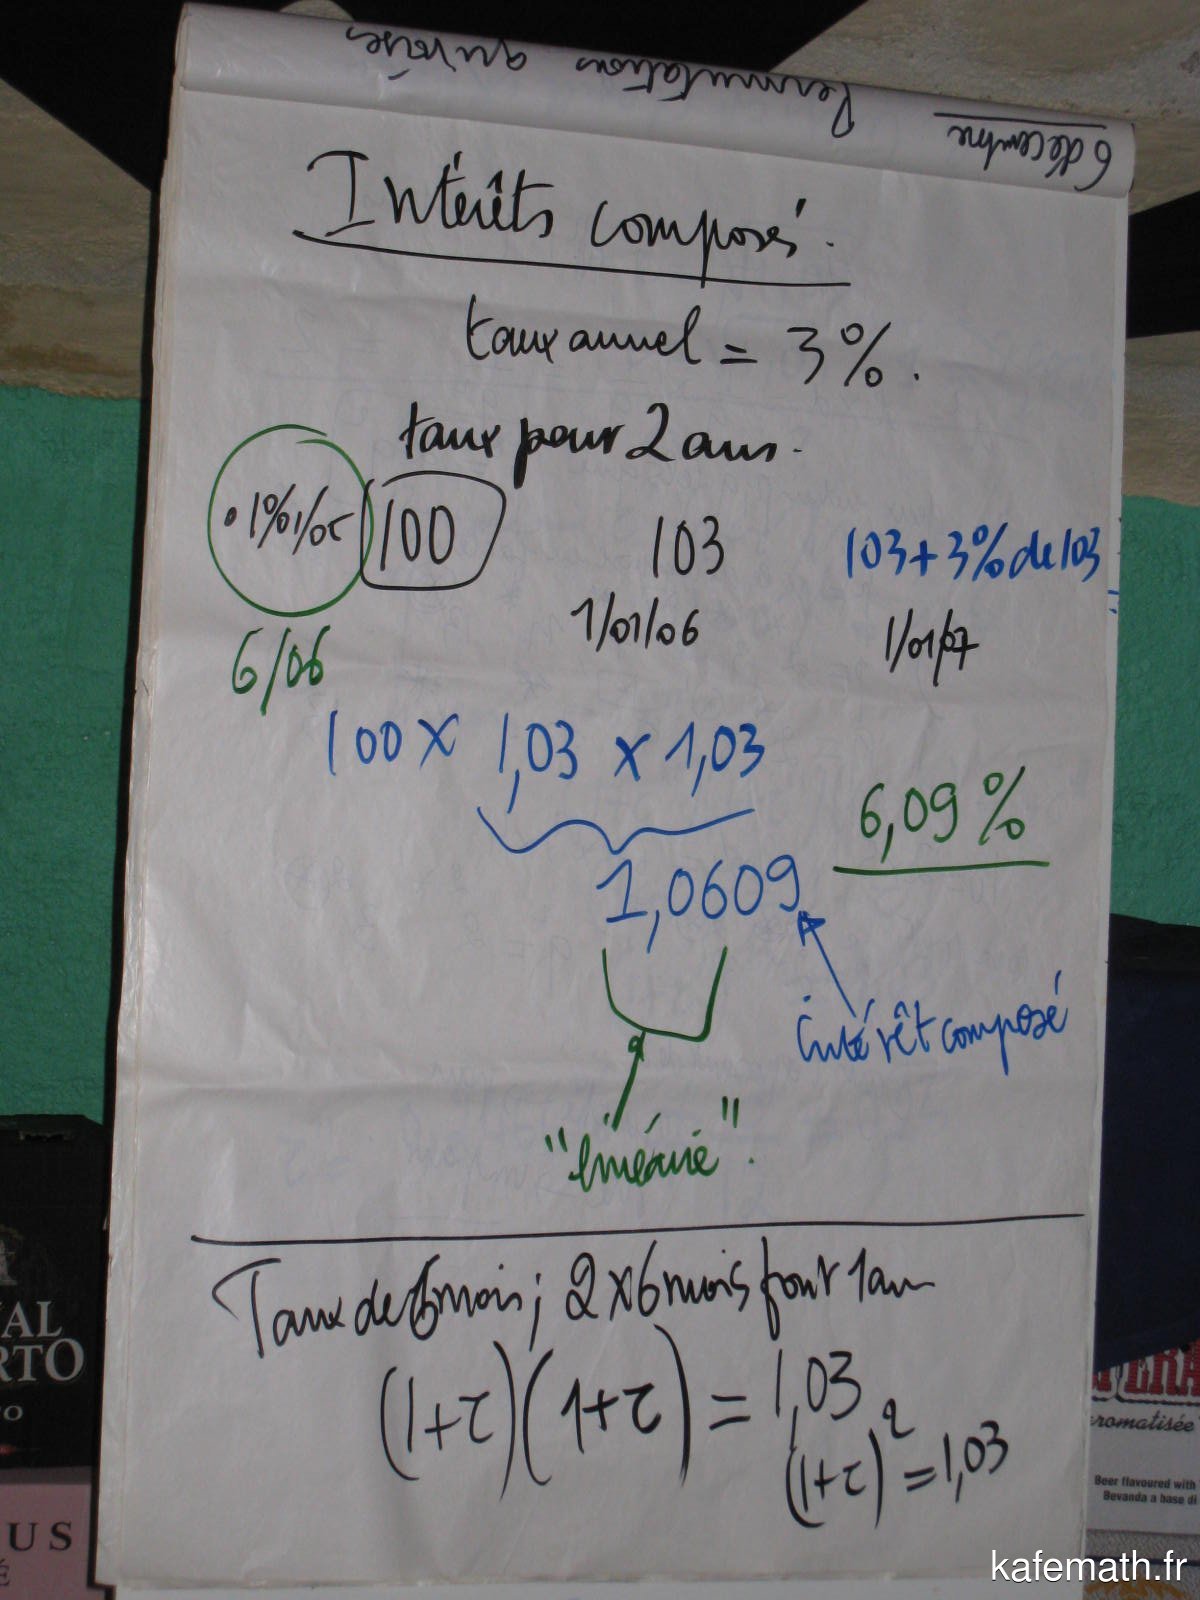 6 décembre Permutations
Intérêts composés.
taux annuel = 3%.
taux pour 2 ans.
100
103
103+3% de 103
6/06
1/01/06
1/01/07
100 x 1,03 x 1,03
6,09 %
1,0609
intérêt composé
"linéaire".
Taux de 6 mois; 2 x 6 mois font 1 an
(1+τ)(1+τ) = 1,03
(1+τ)² = 1,03
VAL
RTO
TO
US
É
romatisée
Beer flavoured with
Bevanda a base di
kafemath.fr